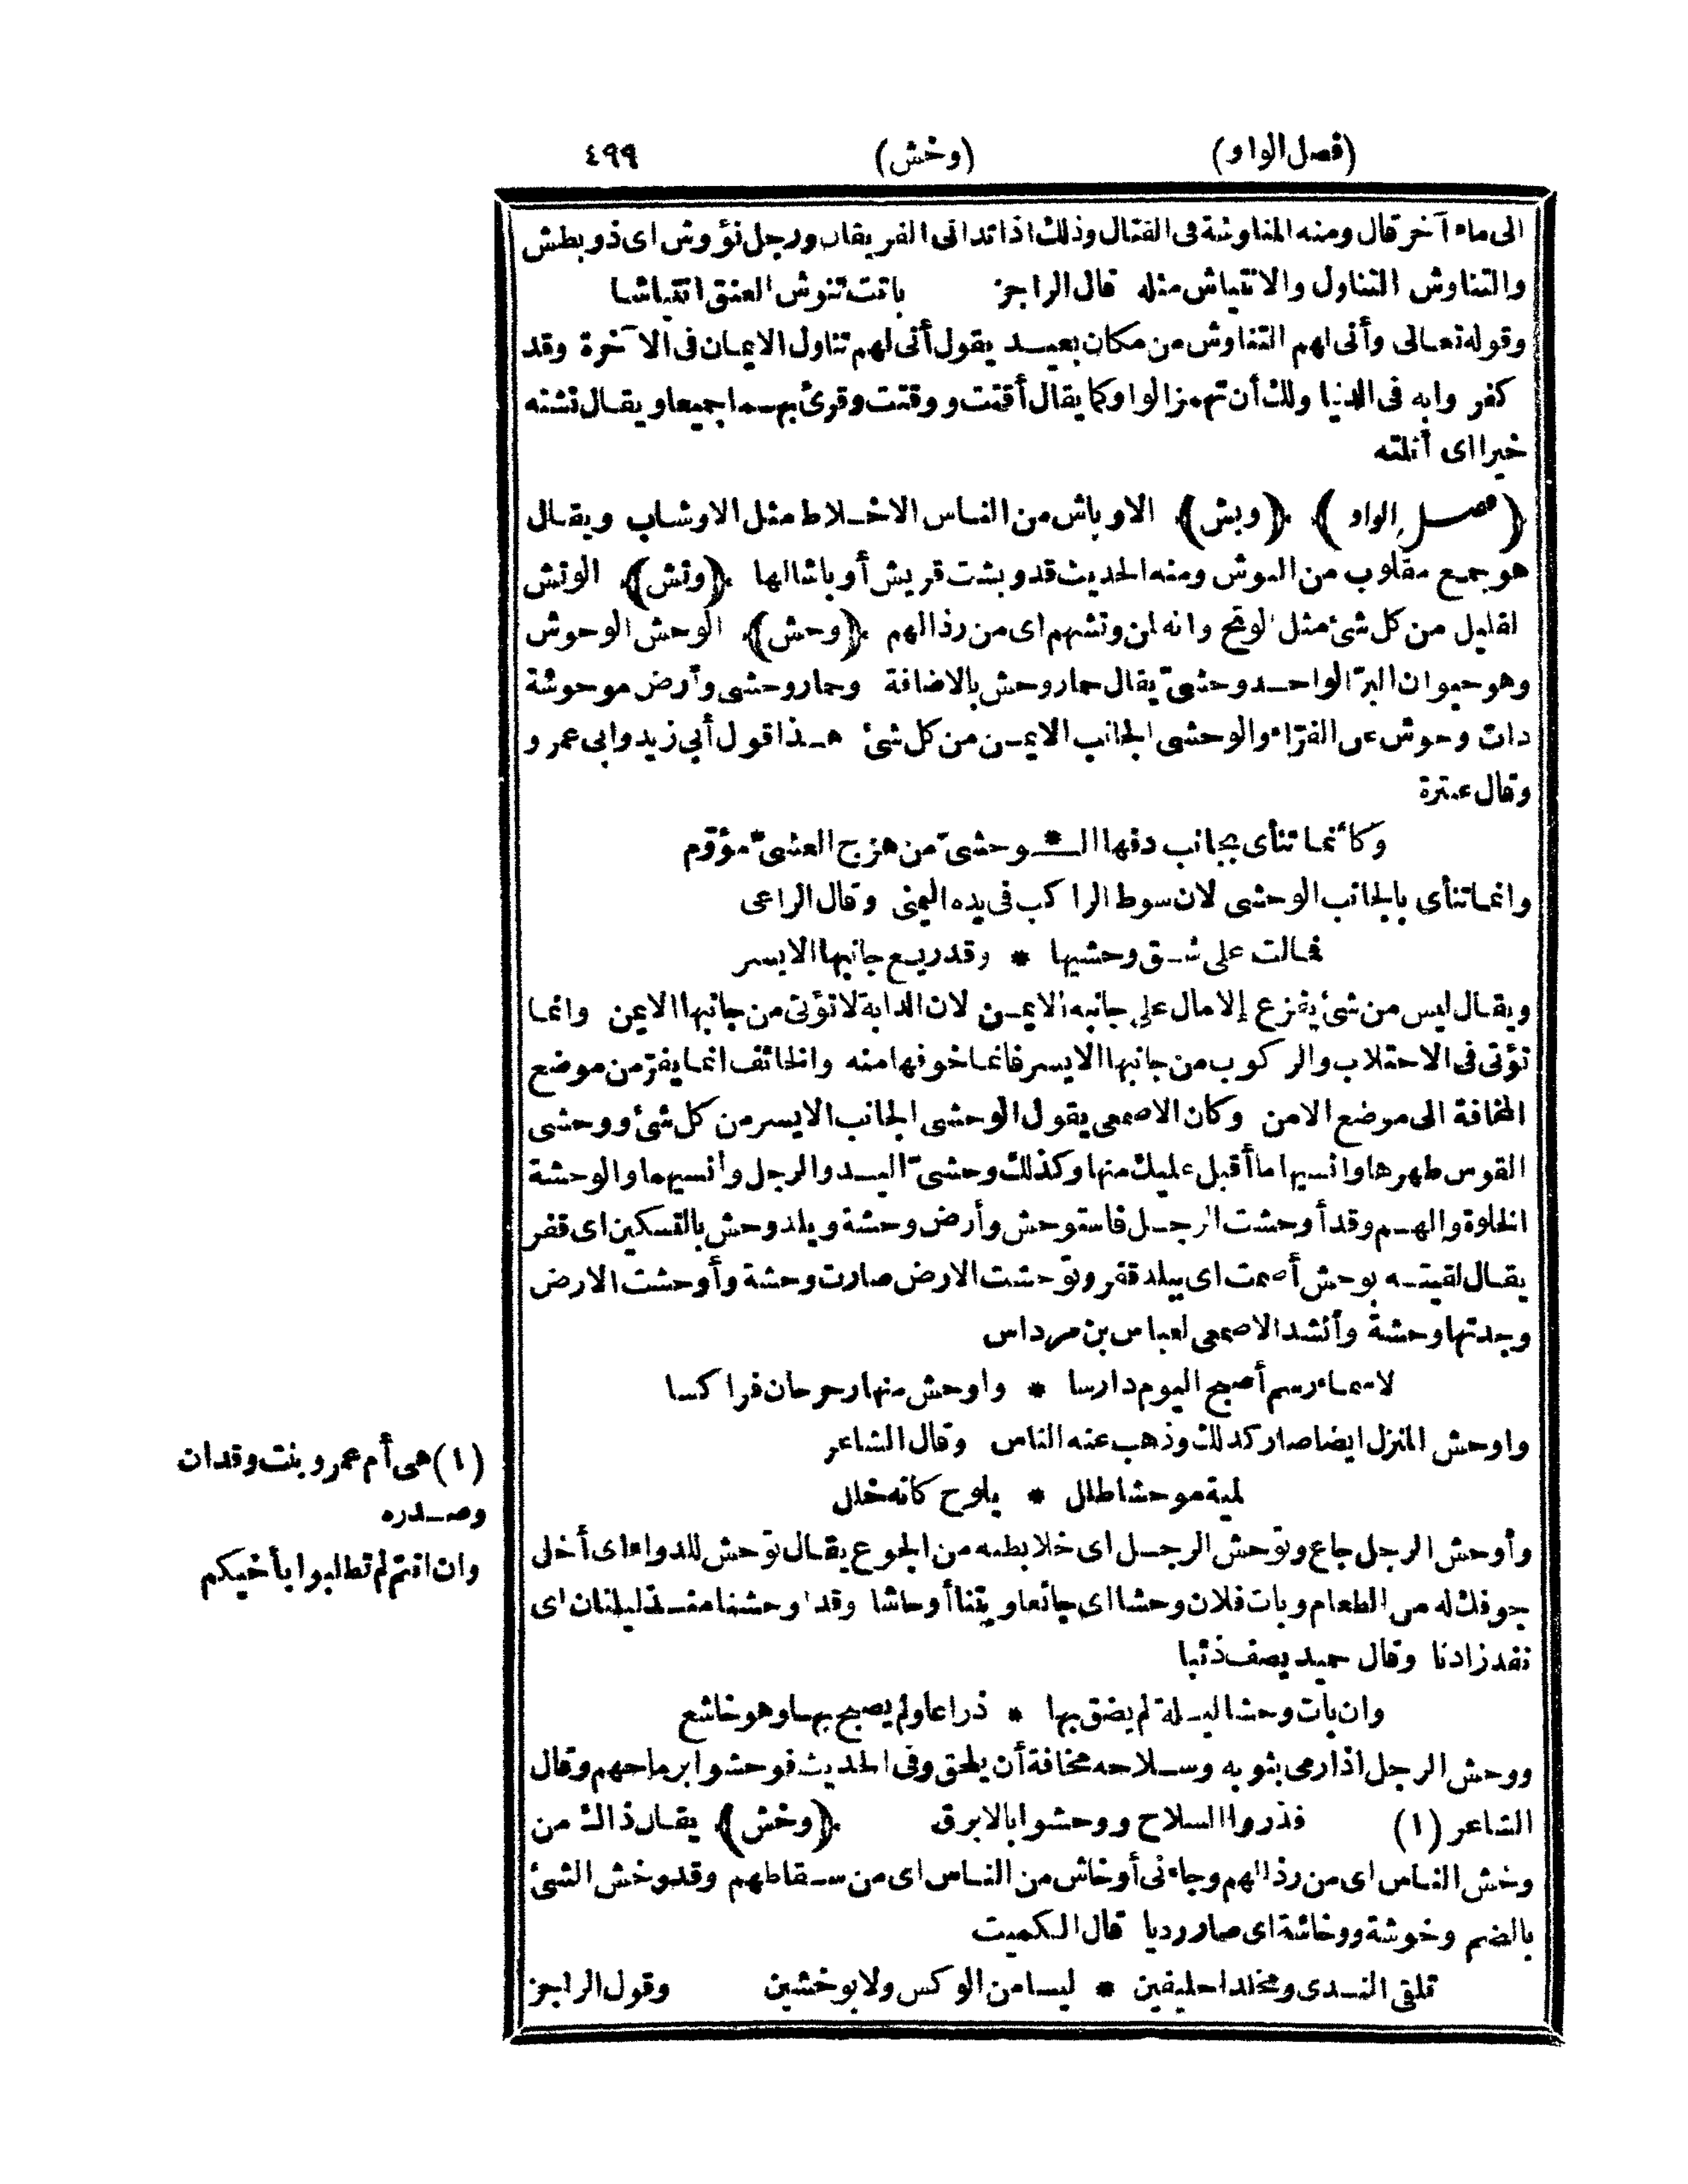 (فصل الواو) (وخش) ٤٩٩
الى ماء آخر قال ومنه المناوشة فى القتال وذلك اذا تدانى الفريقان ورجل نؤوش اى ذو بطش
والتناوش التناول والانتياش مثله قال الراجز باتت تنوش العنق انتياشا
وقوله تعالى وأنى لهم التناوش من مكان بعيد يقول أنى لهم تناول الايمان فى الآخرة وقد
كفروا به فى الدنيا ولك أن تهمز الواو كما يقال أقتت ووقتت وقرئ بهما جميعا ويقال نشته
خيرا اى أنلته
(فصل الواو) (وبش) الاوباش من الناس الاخلاط مثل الاوشاب ويقال
هو جمع مقلوب من البوش ومنه الحديث قد وبشت قريش أوباشا لها (وتش) الوتش
لقليل من كل شئ مثل الوتح وانه لمن وتشهم اى من رذالهم (وحش) الوحش الوحوش
وهو حيوان البرّ الواحد وحشىّ يقال حمار وحش بالاضافة وحمار وحشى وأرض موحوشة
ذات وحوش عن الفرّاء والوحشى الجانب الايمن من كل شئ هذا قول أبى زيد وابى عمرو
وقال عنترة
وكأنما تنأى بجانب دفها الـ * ـوحشىّ من هزج العشىّ مؤوّم
وانما تنأى بالجانب الوحشى لان سوط الراكب فى يده اليمنى وقال الراعى
فجالت على شق وحشيها * وقد ريع جانبها الايسر
ويقال ليس من شئ يفزع إلا مال على جانبه الايمن لان الدابة لا تؤتى من جانبها الايمن وانما
تؤتى فى الاحتلاب والركوب من جانبها الايسر فانما خوفها منه والخائف انما يفرّ من موضع
المخافة الى موضع الامن وكان الاصمعى يقول الوحشى الجانب الايسر من كل شئ ووحشى
القوس ظهرها وانسيها ما أقبل عليك منها وكذلك وحشىّ اليد والرجل وانسيهما والوحشة
الخلوة والهم وقد أوحشت الرجل فاستوحش وأرض وحشة وبلد وحش بالتسكين اى قفر
يقال لقيته بوحش أصمت اى ببلد قفر وتوحشت الارض صارت وحشة وأوحشت الارض
وجدتها وحشة وأنشد الاصمعى لعباس بن مرداس
لاسماء رسم أصبح اليوم دارسا * واوحش منها رحرحان فراكسا
واوحش المنزل ايضا صار كذلك وذهب عنه الناس وقال الشاعر
لمية موحشا طلل * يلوح كانه خلل
وأوحش الرجل جاع وتوحش الرجل اى خلا بطنه من الجوع يقال توحش للدواء اى أخل
جوفك له من الطعام وبات فلان وحشا اى جائعا وبتنا أوحاشا وقد اوحشنا منذ ليلتان اى
نفد زادنا وقال حميد يصف ذئبا
وان بات وحشا ليلة لم يضق بها * ذراعا ولم يصبح بها وهو خاشع
ووحش الرجل اذا رمى بثوبه وسلاحه مخافة أن يلحق وفى الحديث فوحشوا برماحهم وقال
الشاعر (١) فذروا السلاح ووحشوا بالابرق (وخش) يقال ذاك من
وخش الناس اى من رذالهم وجاءنى أوخاش من الناس اى من سقاطهم وقد وخش الشئ
بالضم وخوشة ووخاشة اى صار رديا قال الكميت
تلقى الندى ومخلدا حليفين * ليسا من الوكس ولا بوخشين وقول الراجز
(١) هى أم عمرو بنت وقدان
وصدره
وان انتم لم تطلبوا بأخيكم